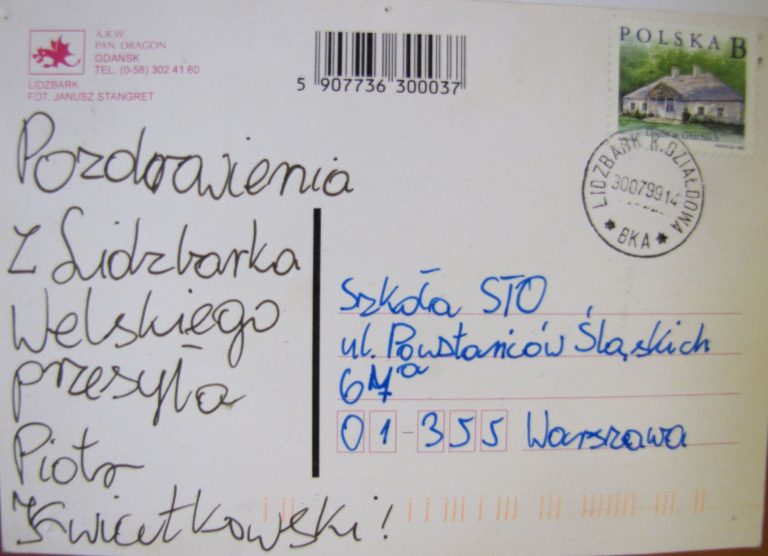 A.R.W.
PAN DRAGON
GDAŃSK
TEL. (0-58) 302 41 60
LIDZBARK
FOT. JANUSZ STANGRET
5 907736 300037
POLSKA B
LIDZBARK K.DZIAŁDOWA
30079914
* BKA *
Pozdrowienia
Z Lidzbarka
Welskiego
przesyła
Piotr
Kwiatkowski!
Szkoła STO
ul. Powstańców Śląskich
67a
01-355 Warszawa